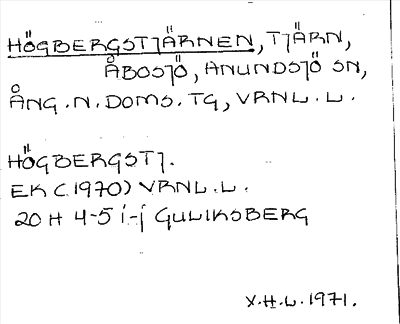 HÖGBERGSTJÄRNEN, TJÄRN,
ÅBOSJÖ, ANUNDSJÖ SN,
ÅNG. N. DOMS. TG, VRNL. L.
HÖGBERGSTJ.
EK (1970) VRNL. L.
20 H 4-5 i-j GULIKSBERG
X.H.L. 1971.